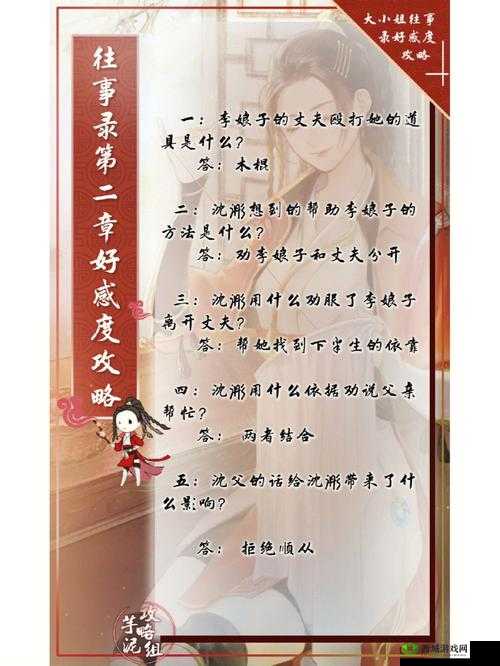 大小姐往事
录好感度
攻略
往事录第二章好感度攻略
一：李娘子的丈夫殴打她的道
具是什么？
答：木棍
二：沈渺想到的帮助李娘子的
方法是什么？
答：劝李娘子和丈夫分开
三：沈渺用什么劝服了李娘子
离开丈夫？
答：帮她找到下半生的依靠
四：沈渺用什么依据劝说父亲
帮忙？
答：两者结合
五：沈父的话给沈渺带来了什
么影响？
答：拒绝顺从
芋泥
攻略组
西城游戏网